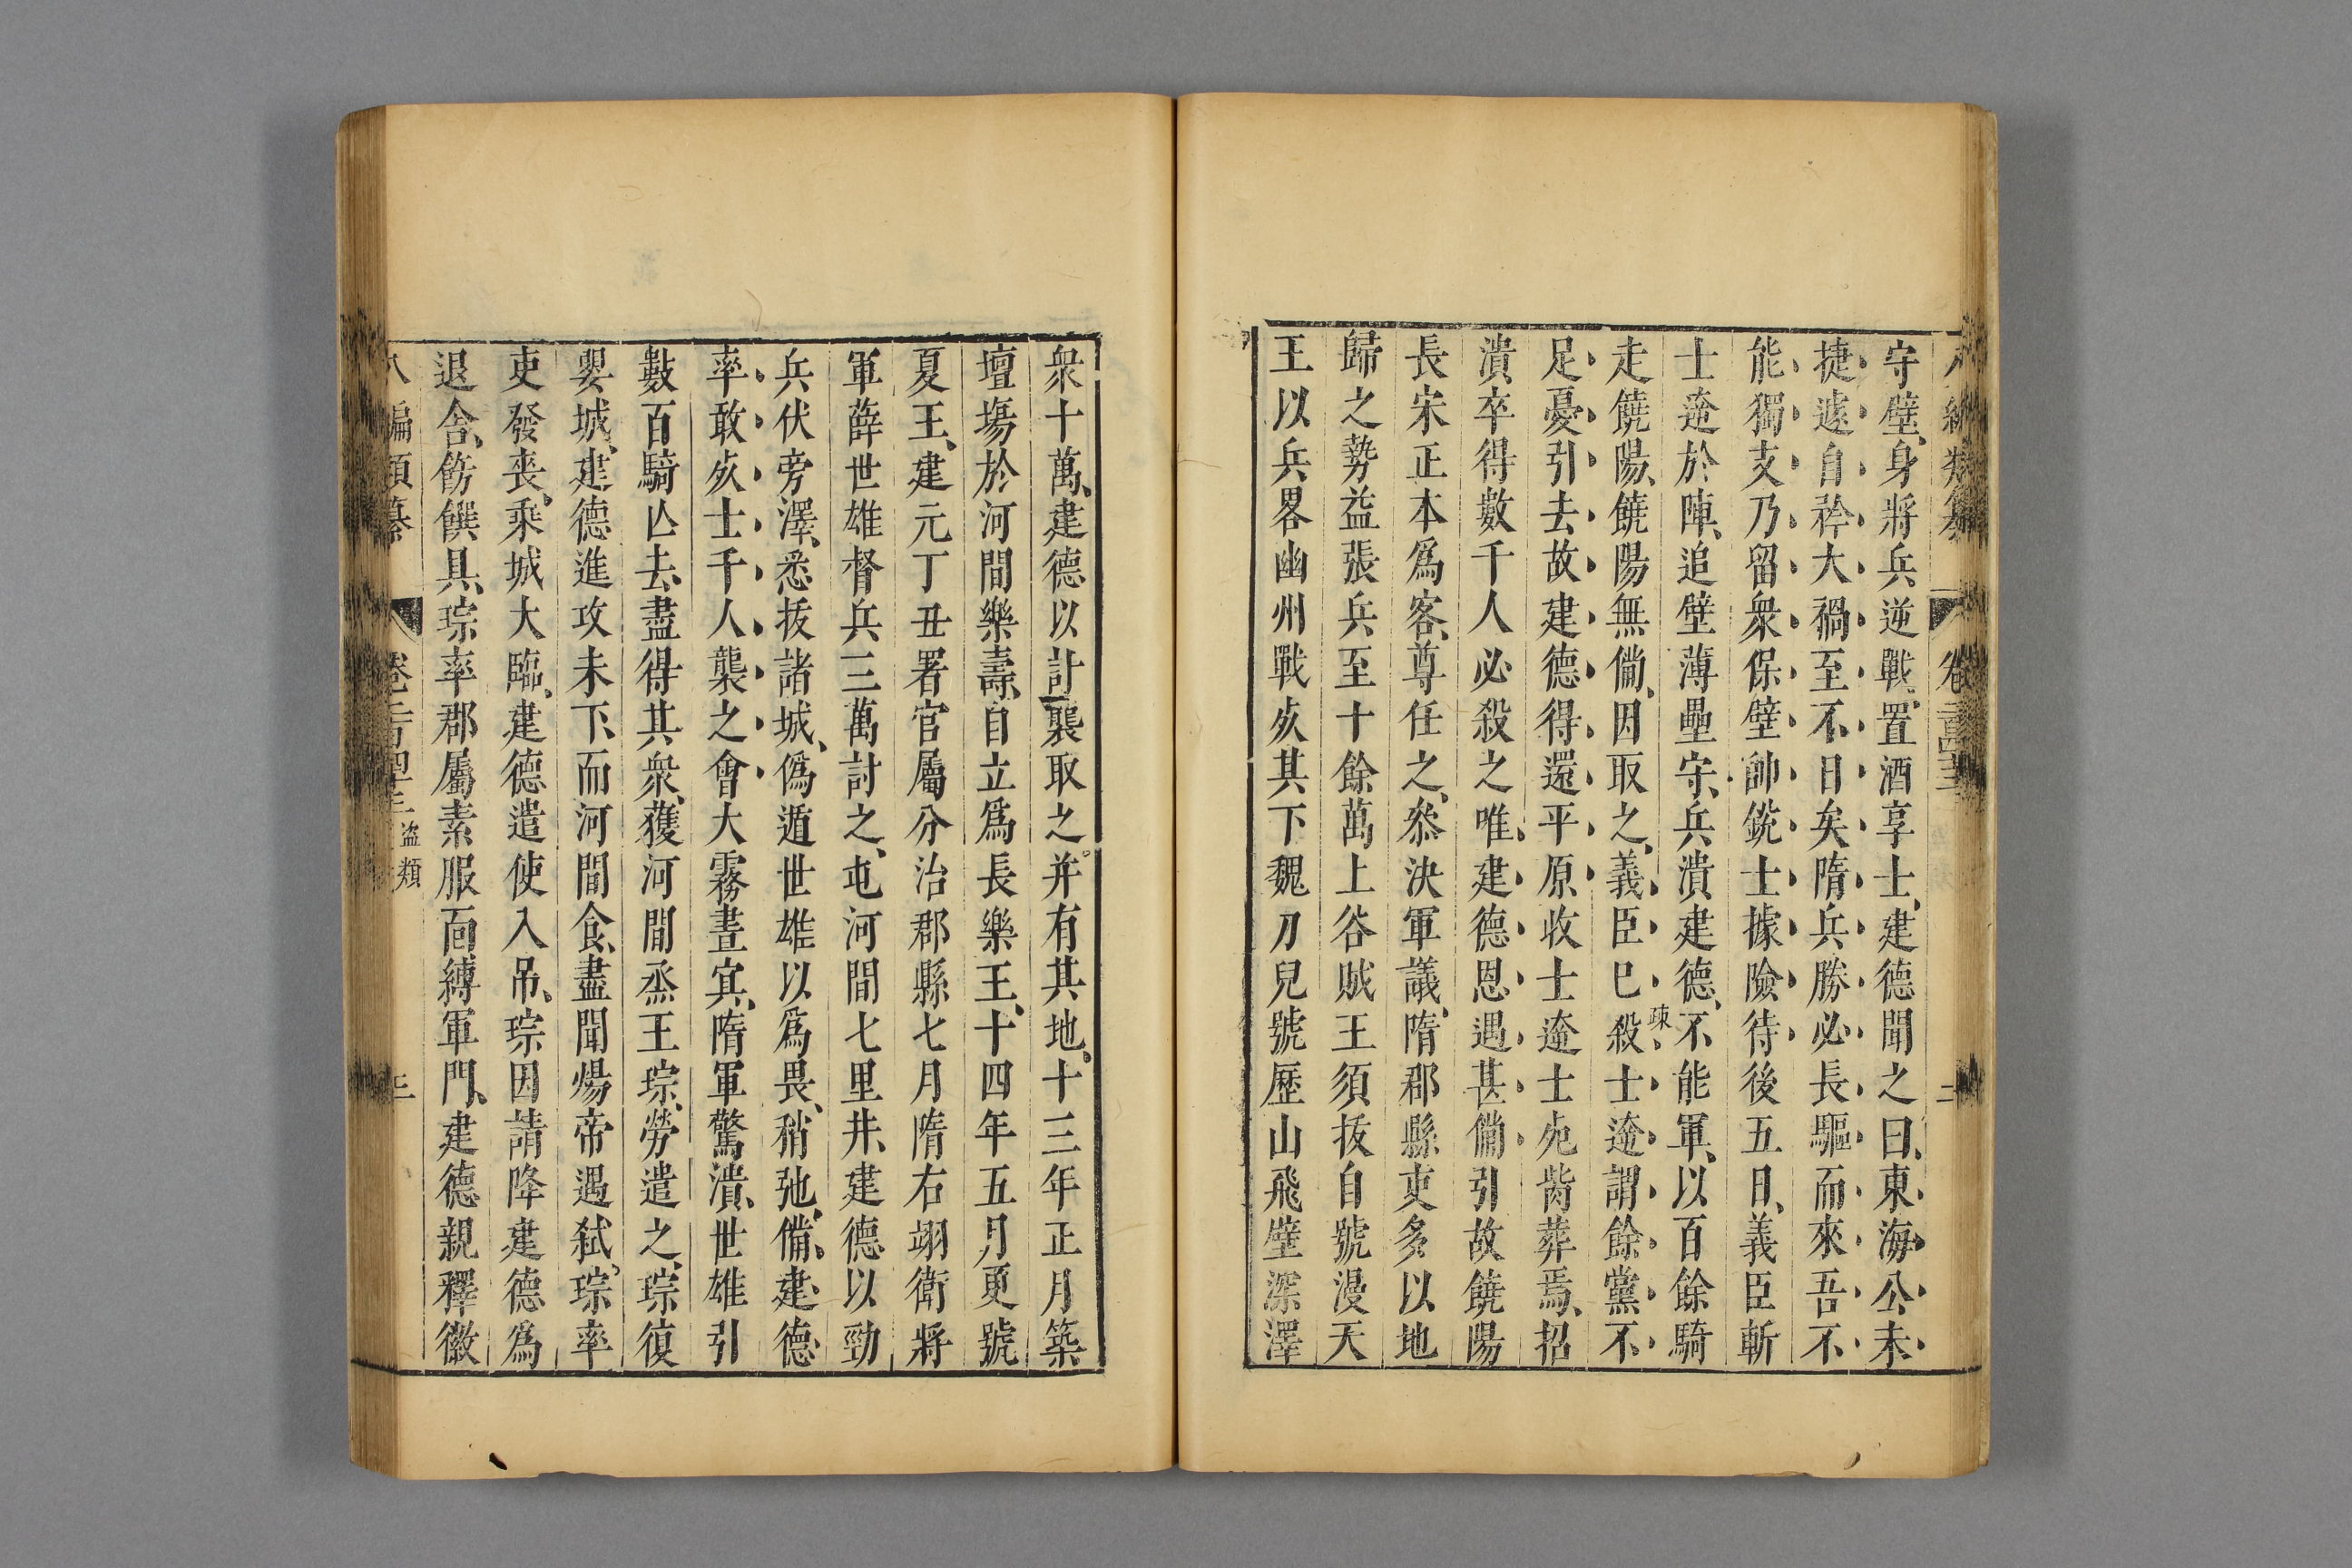 守壁身將兵逆戰置酒享士建德聞之曰東海公未
捷遽自矜大禍至不日矣隋兵勝必長驅而來吾不
能獨支乃留衆保壁帥銳士據險待後五日義臣斬
士達於陣追壁薄壘守兵潰建德不能軍以百餘騎
走饒陽饒陽無僃因取之義臣巳殺士達謂餘黨不
疎
足憂引去故建德得還平原收士達士死胔葬焉招
潰卒得數千人必殺之唯建德恩遇甚僃引故饒陽
長宋正本爲客尊任之叅決軍議隋郡縣吏多以地
歸之勢益張兵至十餘萬上谷賊王須拔自號漫天
王以兵畧幽州戰死其下魏刀兒號歷山飛壁深澤
衆十萬建德以計襲取之并有其地十三年正月築
壇塲於河間樂壽自立爲長樂王十四年五月更號
夏王建元丁丑署官屬分治郡縣七月隋右翊衛將
軍薛世雄督兵三萬討之屯河間七里井建德以勁
兵伏旁澤悉拔諸城僞遁世雄以爲畏稍弛僃建德
率敢死士千人襲之會大霧晝冥隋軍驚潰世雄引
數百騎亾去盡得其衆獲河間烝王琮勞遣之琮復
嬰城建德進攻未下而河間食盡聞煬帝遇弒琮率
吏發喪乘城大臨建德遣使入吊琮因請降建德爲
退舍飭饌具琮率郡屬素服面縛軍門建德親釋徽
八編類纂 盗類